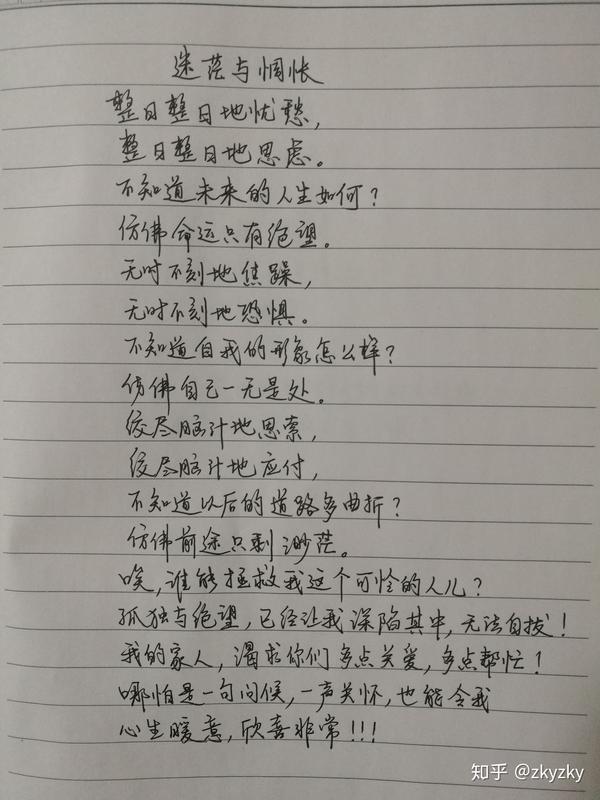 迷茫与惆怅
整日整日地忧愁，
整日整日地思虑。
不知道未来的人生如何？
仿佛命运只有绝望。
无时不刻地焦躁，
无时不刻地恐惧。
不知道自我的形象怎么样？
仿佛自己一无是处。
绞尽脑汁地思索，
绞尽脑汁地应付，
不知道以后的道路多曲折？
仿佛前途只剩渺茫。
唉，谁能拯救我这个可怜的人儿？
孤独与绝望，已经让我深陷其中，无法自拔！
我的家人，渴求你们多点关爱，多点帮忙！
哪怕是一句问候，一声关怀，也能令我
心生暖意，欣喜非常！！！
知乎 @zkyzky